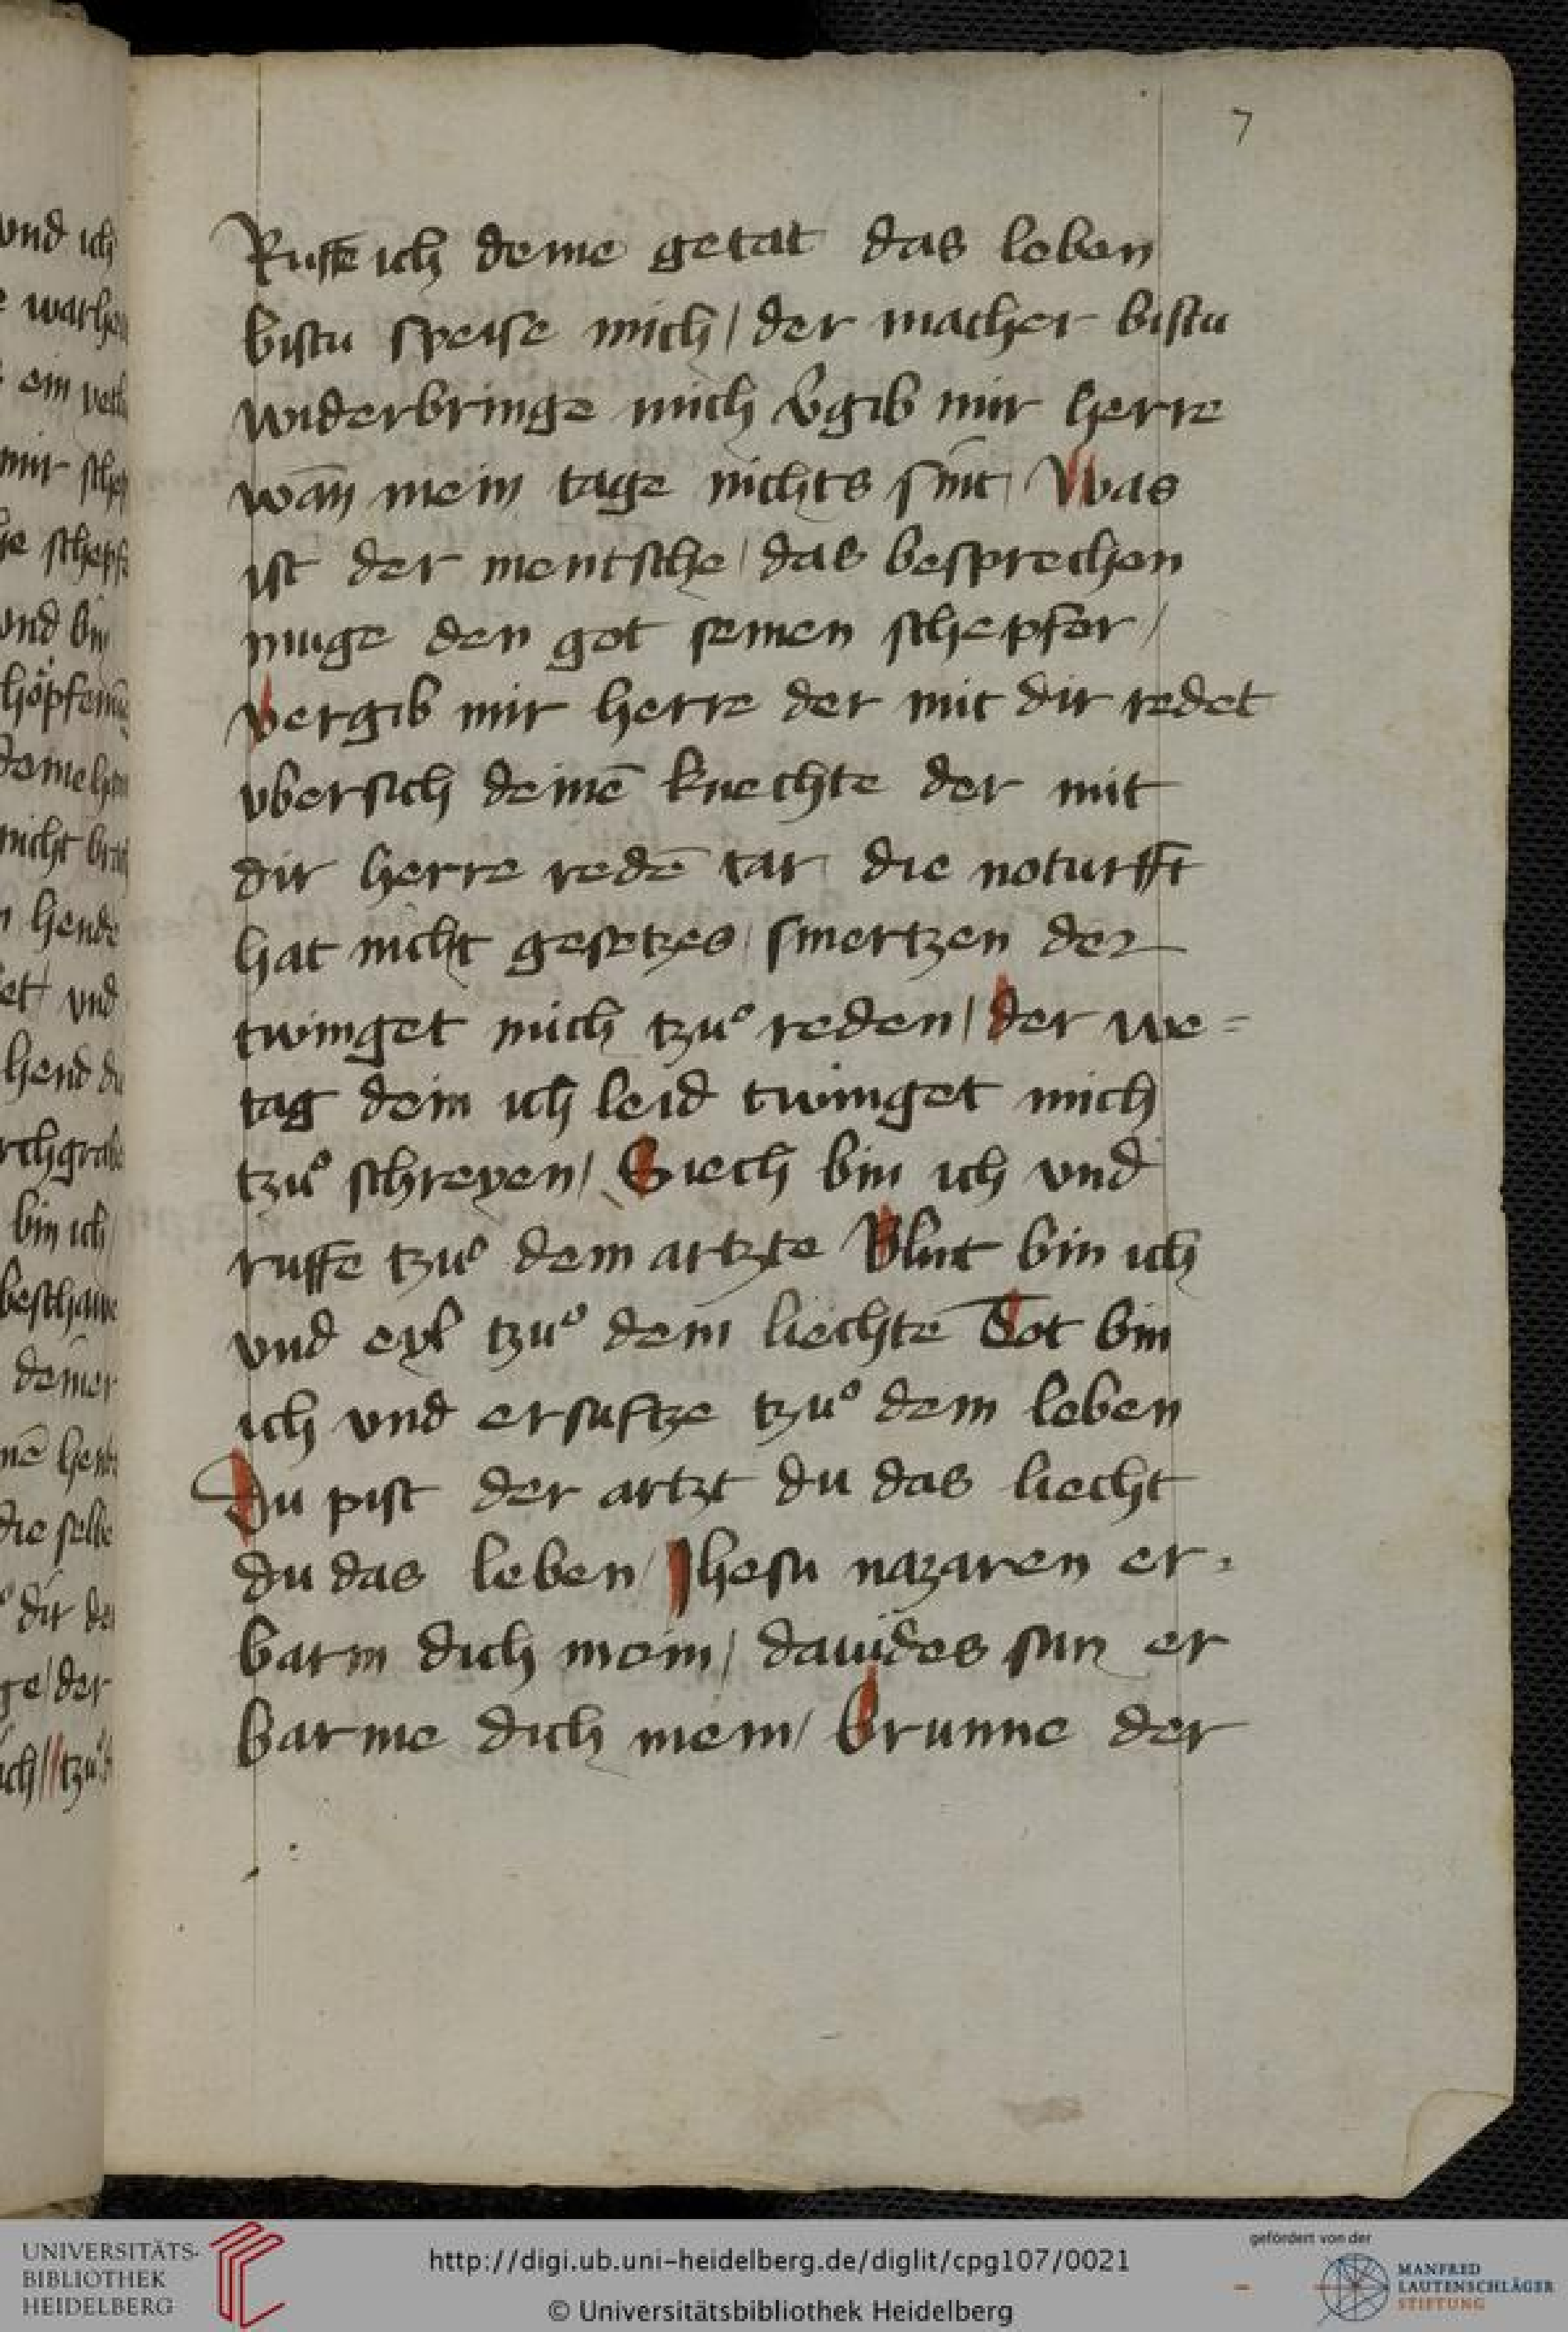 7
Ruffe ich deine getat das leben
bistu speise mich / der macher bistu
widerbringe mich v̄gib mir herre
wān mein tage nichts sint Was
ist der mentsche / das besprechen
muge den got seinen schepfer /
vergib mir herre der mit dir redet
vbersich deinē knechte der mit
dir herre redē tar die noturfft
hat nicht gesetzes / smertzen der
twinget mich tzuͦ reden / der we=
tag dein ich leid twinget mich
tzuͦ schreyen / Siech bin ich vnd
ruffe tzuͦ dem artzte Blint bin ich
vnd eyl tzuͦ dem liechte Tot bin
ich vnd ersuftze tzuͦ dem leben
Du pist der artzt du das liecht
du das leben / Jhesu nazaren er=
barm dich mein / dauides sun er
barme dich mein / Brunne der
vnd ich
mir
vnd bin
hende
vnd
hend
bin ich
beschawe
deiner
die selbe
der
UNIVERSITÄTS-
BIBLIOTHEK
HEIDELBERG
http://digi.ub.uni-heidelberg.de/diglit/cpg107/0021
© Universitätsbibliothek Heidelberg
gefördert von der
MANFRED
LAUTENSCHLÄGER
STIFTUNG